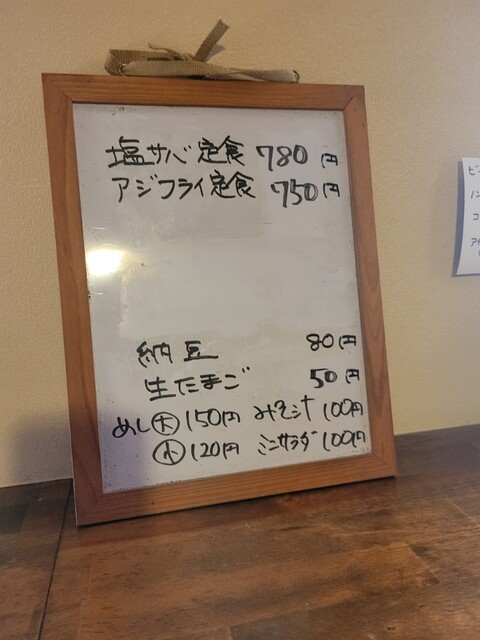 塩サバ定食 780円
アジフライ定食 750円
納豆 80円
生たまご 50円
めし大 150円 みそ汁 100円
小 120円 ミニサラダ 100円